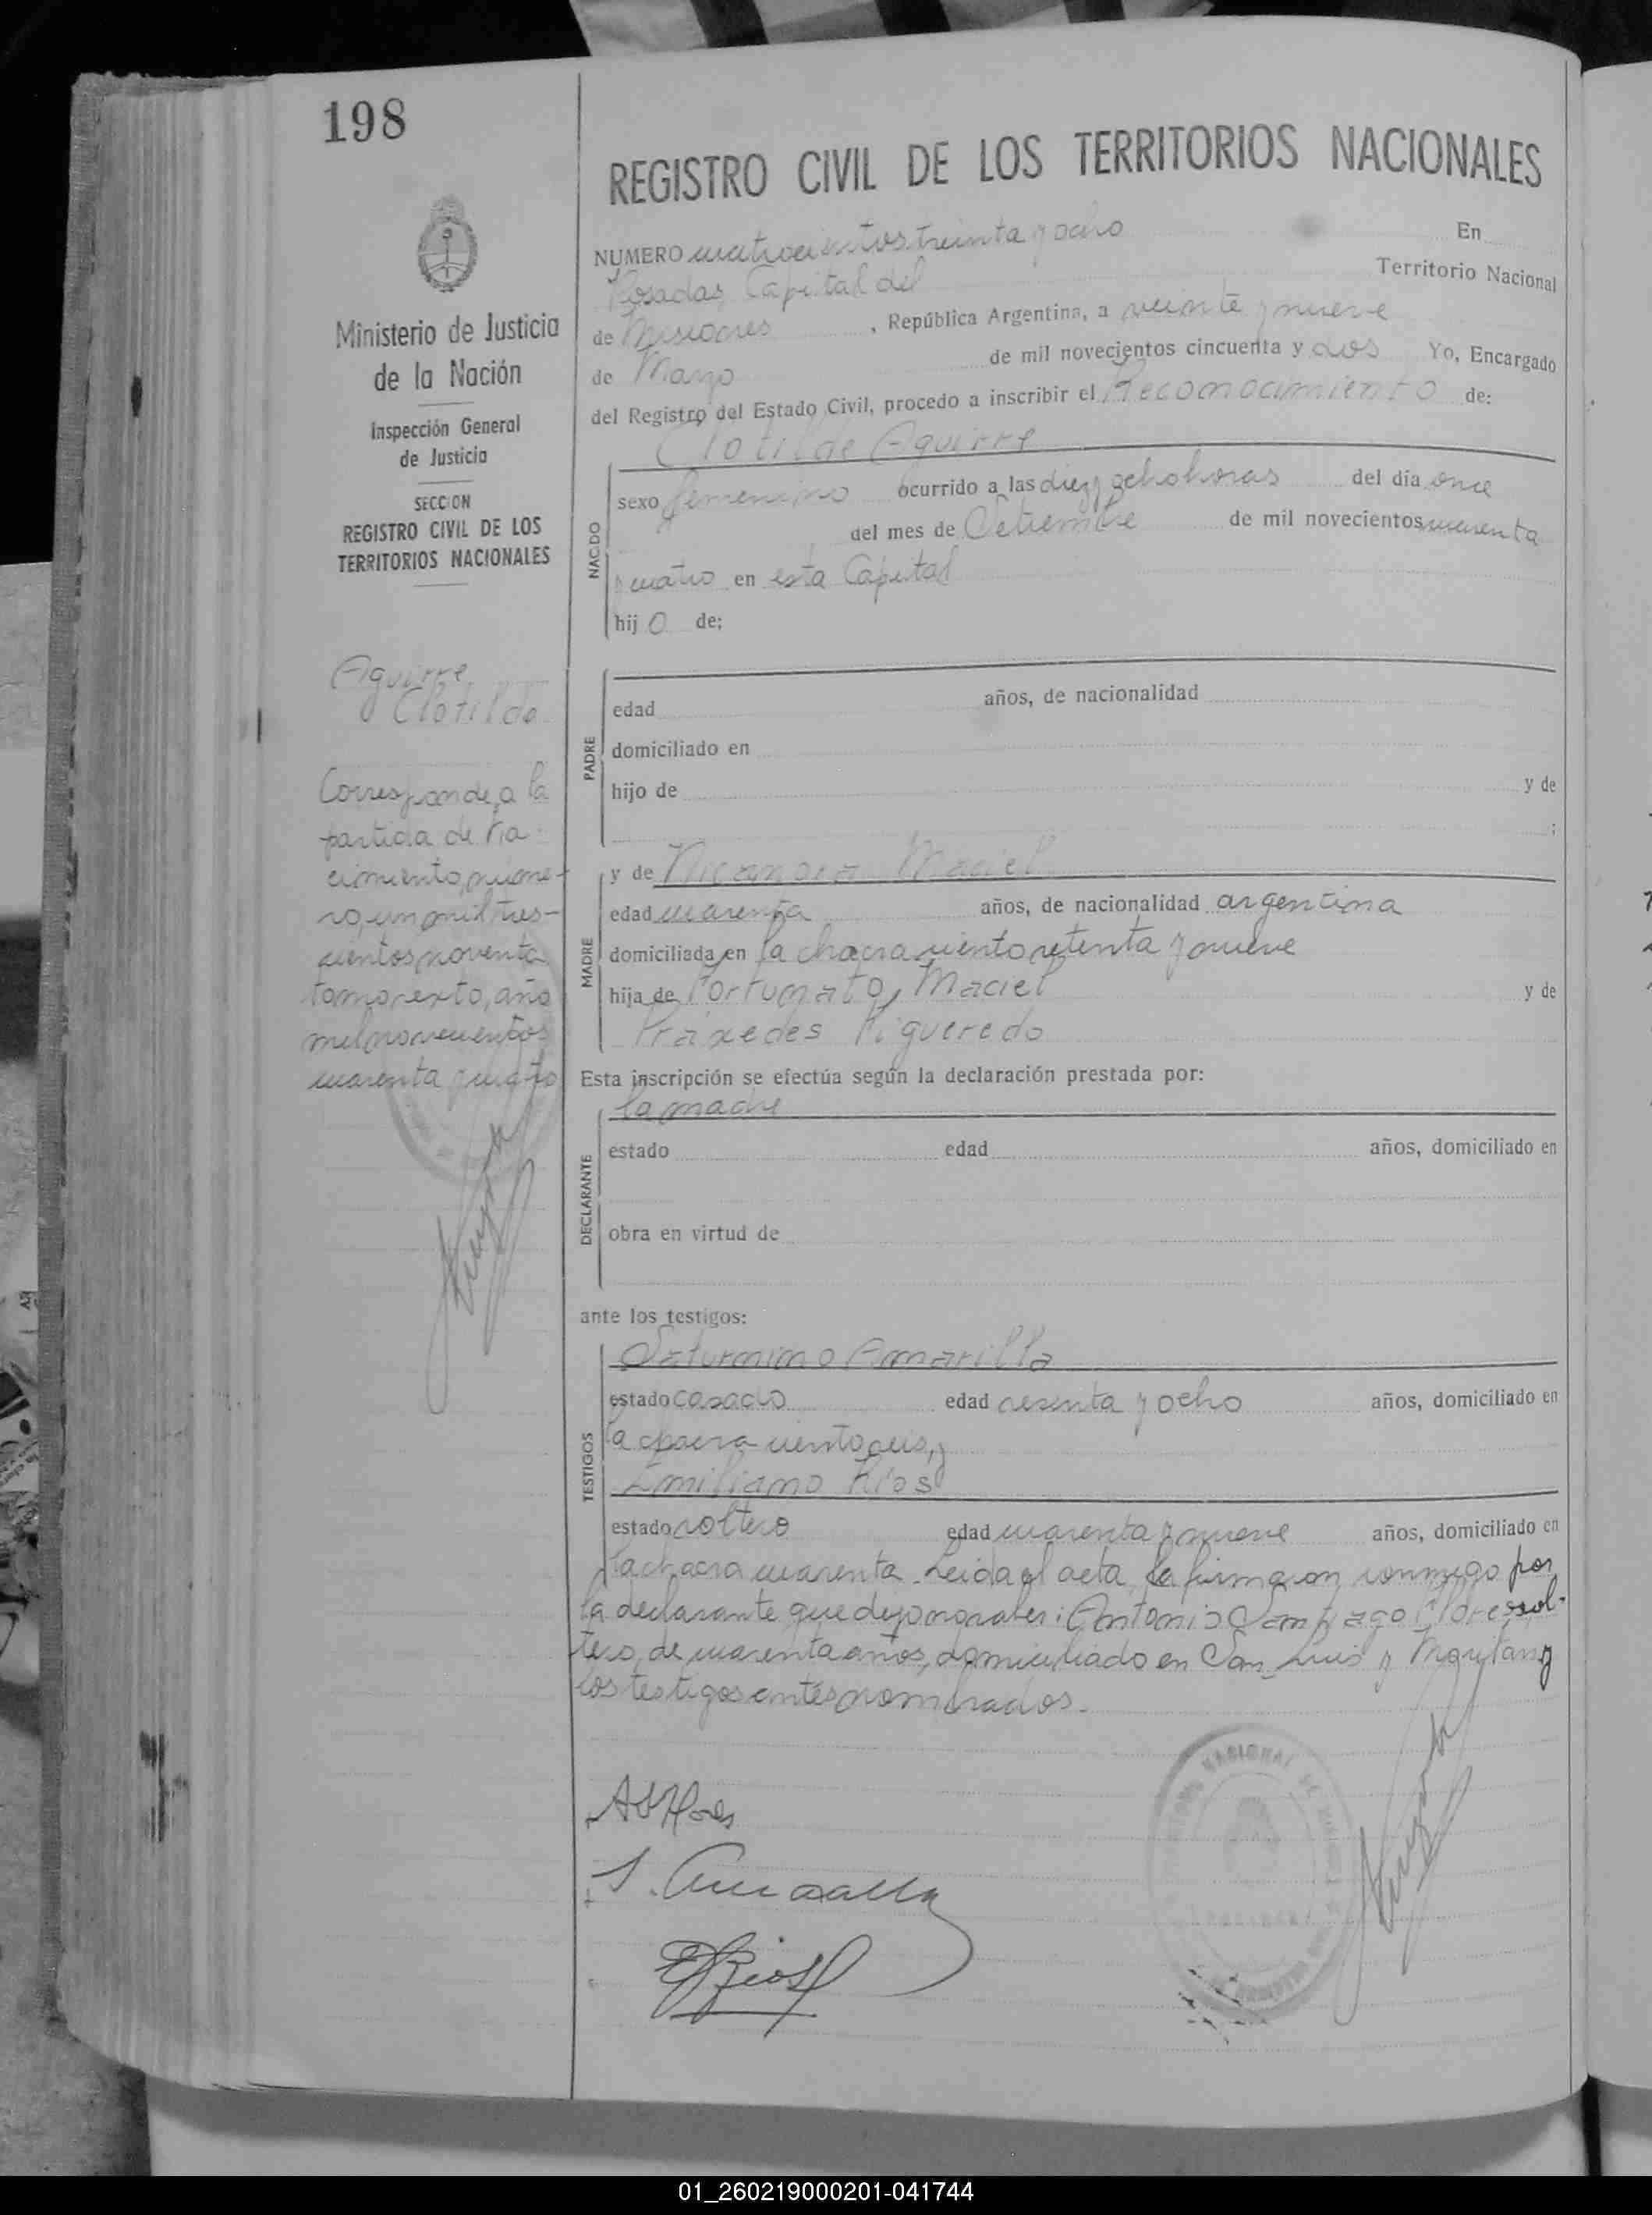 198
Ministerio de Justicia
de la Nación
Inspección General
de Justicia
SECCION
REGISTRO CIVIL DE LOS
TERRITORIOS NACIONALES
Aguirre
Clotilde
Corresponde a la
partida de na-
cimiento, núme-
ro, un mil tres-
cientos noventa
tomo sexto, año
mil novecientos
cuarenta y cuatro
REGISTRO CIVIL DE LOS TERRITORIOS NACIONALES
NUMERO cuatrocientos treinta y ocho En
Posadas, Capital del Territorio Nacional
de Misiones , República Argentina, a veinte y nueve
de Marzo de mil novecientos cincuenta y dos Yo, Encargado
del Registro del Estado Civil, procedo a inscribir el Reconocimiento de:
Clotilde Aguirre
NACIDO
sexo femenino ocurrido a las diez y ocho horas del día once
del mes de Setiembre de mil novecientos cuarenta
y cuatro en esta Capital
hij o de:
PADRE
edad años, de nacionalidad
domiciliado en
hijo de y de
;
MADRE
y de Nicanora Maciel
edad cuarenta años, de nacionalidad argentina
domiciliada en la chacra ciento setenta y nueve
hija de Fortunato Maciel y de
Práxedes Figueredo
Esta inscripción se efectúa según la declaración prestada por:
la madre
DECLARANTE
estado edad años, domiciliado en
obra en virtud de
ante los testigos:
TESTIGOS
Saturnino Amarilla
estado casado edad sesenta y ocho años, domiciliado en
la chacra ciento seis, y
Emiliano Ríos
estado soltero edad cuarenta y nueve años, domiciliado en
la chacra cuarenta. Leida el acta, la firmaron conmigo por
la declarante que dijo no saber: Antonio Santiago Flores, sol-
tero, de cuarenta años, domiciliado en San Luis y y
los testigos antes nombrados.
AS Flores
S. Amarilla
E Rios
NACIONAL DE
01_260219000201-041744